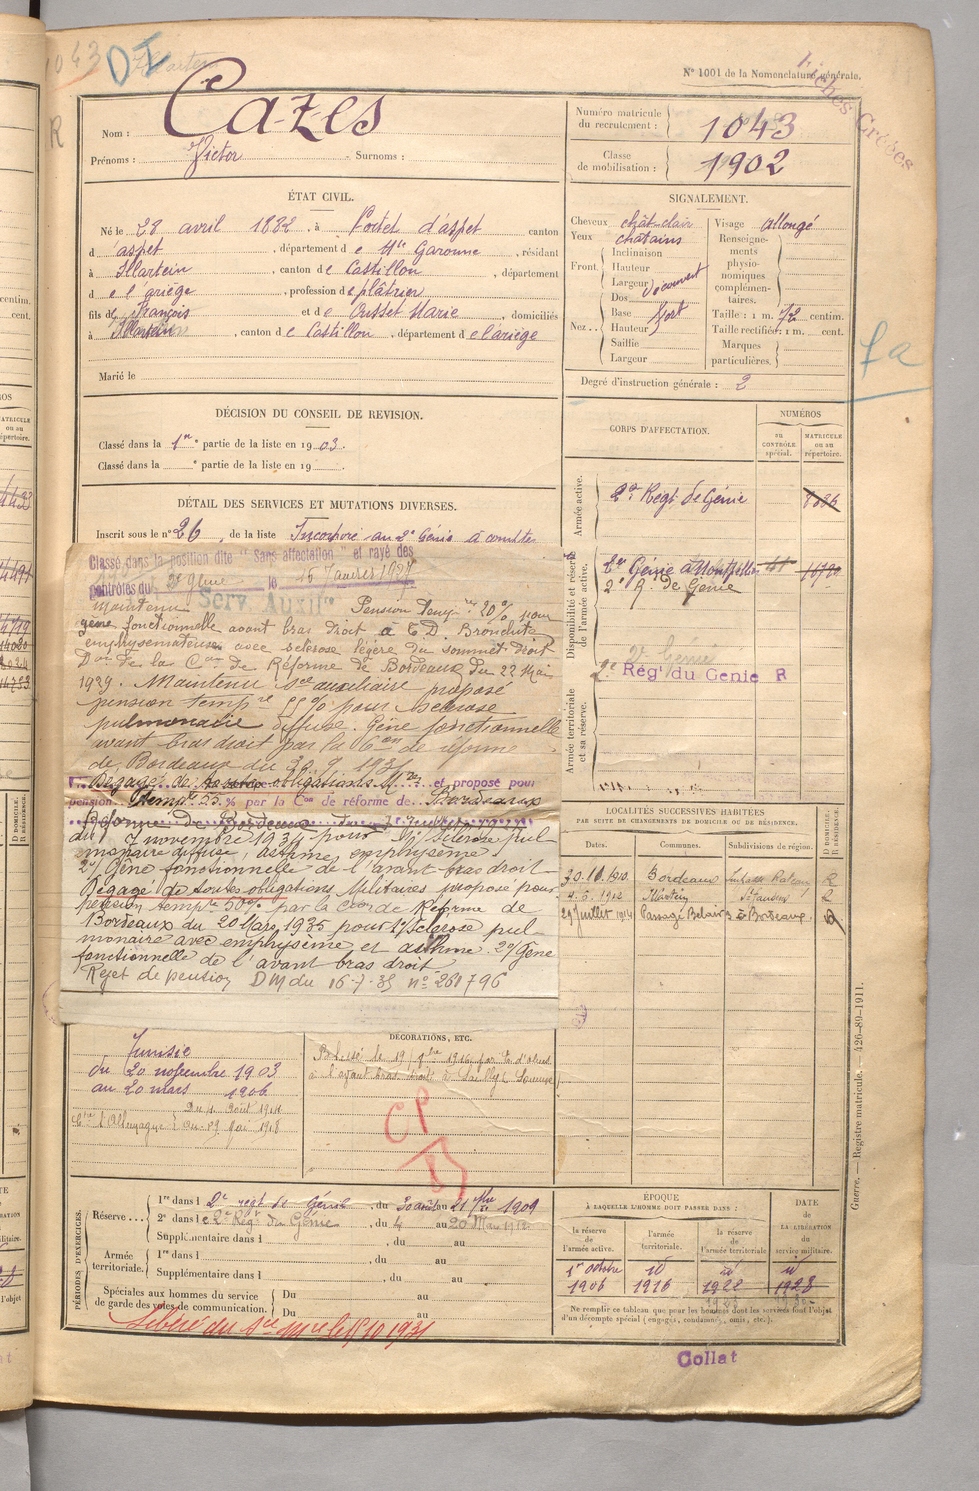 1043
DI
N° 1001 de la Nomenclature générale.
Fiches Créées
Nom : Cazes
Prénoms : Victor Surnoms :
Numéro matricule du recrutement : 1043
Classe de mobilisation : 1902
ÉTAT CIVIL.
Né le 28 avril 1882, à Portet d'aspet canton
d aspet, département de Hte Garonne, résidant
à Illartein, canton de Castillon, département
de l'ariège, profession de plâtrier
fils de François et de Ousset Marie, domiciliés
à Illartein, canton de Castillon, département de l'ariège
Marié le
SIGNALEMENT.
Cheveux chât-clair
Yeux chatains
Front. Inclinaison
Hauteur
Largeur découvert
Nez. Dos
Base fort
Hauteur
Saillie
Largeur
Visage allongé
Renseignements physionomiques complémentaires.
Taille : 1 m. 72 centim.
Taille rectifiée : 1 m. cent.
Marques particulières.
Degré d'instruction générale : 2
DÉCISION DU CONSEIL DE REVISION.
Classé dans la 1re partie de la liste en 1903.
Classé dans la ° partie de la liste en 19
DÉTAIL DES SERVICES ET MUTATIONS DIVERSES.
Inscrit sous le n° 26, de la liste Incorporé au 2e Génie à compter
Classé dans la position dite "Sans affectation" et rayé des
contrôles du 2e Génie le 15 Janvier 1927
Maintenu Serv. Auxil. Pension temp. 20% pour
gêne fonctionnelle avant bras droit à T.D. Bronchite
emphysémateuse avec sclérose légère du sommet droit
Don de la Con de Réforme de Bordeaux du 22 Mai
1929. Maintenu Sce auxiliaire proposé
pension tempre pour sclérose
pulmonaire diffuse. Gêne fonctionnelle
avant bras droit par la Con de réforme
de Bordeaux du
Dégagé de toutes obligations Mres et proposé pour
pension temp. 25 % par la Con de réforme de Bordeaux
Réforme de Bordeaux
du 7 novembre pour 1°/ Sclérose pul-
monaire diffuse, asthme, emphysème
2°/ Gêne fonctionnelle de l'avant bras droit
Dégagé de toutes obligations Militaires proposé pour
pension tempre 50% par la Con de Réforme de
Bordeaux du 20 Mars 1935 pour 1°/ Sclérose pul-
monaire avec emphysème et asthme. 2°/ Gêne
fonctionnelle de l'avant bras droit
Rejet de pension DM du 16-7-35 n° 261796
CORPS D'AFFECTATION.
NUMÉROS
au CONTRÔLE spécial.
MATRICULE ou au répertoire.
Armée active.
2e Régt de Génie
Disponibilité et réserve de l'armée active.
2e Génie à Montpellier
2e R. de Génie
Armée territoriale et sa réserve.
2e Rég' du Genie R
LOCALITÉS SUCCESSIVES HABITÉES
PAR SUITE DE CHANGEMENTS DE DOMICILE OU DE RÉSIDENCE.
Dates. Communes. Subdivisions de région. D DOMICILE. R RÉSIDENCE.
30.10.1910. Bordeaux R
4.5.1912 Illartein St Gaudens
29 Juillet 1914 Passage Bordeaux
Tunisie
du 20 novembre 1903
au 20 mars 1906
Ctre l'Allemagne
DÉCORATIONS, ETC.
Blessé le 19 1916 par E. d'obus
à l'avant bras droit à Sailly (Somme)
CP
PÉRIODES D'EXERCICES.
Réserve... 1re dans l 2e régt de Génie, du 30 août au 21 1909
2e dans le 2e Régt du Génie, du 4 au 20 Mai 1912
Supplémentaire dans l, du au
Armée territoriale. 1re dans l, du au
Supplémentaire dans l, du au
Spéciales aux hommes du service de garde des voies de communication. Du au
Du au
Libéré du Sce Mre le 15.10.1931
ÉPOQUE
À LAQUELLE L'HOMME DOIT PASSER DANS :
la réserve de l'armée active.
l'armée territoriale.
la réserve de l'armée territoriale
DATE de LA LIBÉRATION du service militaire.
1er octobre 1906
id 1916
id 1922
id 1928
Ne remplir ce tableau que pour les hommes dont les services font l'objet
d'un décompte spécial (engagés, condamnés, omis, etc.).
Guerre. — Registre matricule. — 426-89-1911.
Collat